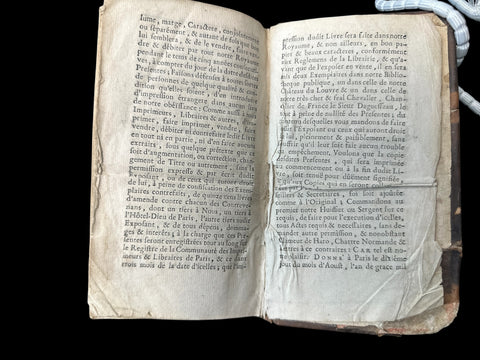 lume, marge, Caractere, conjointement
ou séparément, & autant de fois que bon
lui semblera, & de le vendre, faire
& débiter par tout notre Royaume
pendant le tems de cinq années
, à compter du jour de la date desdites
Presentes; Faisons défenses à toutes
personnes de quelque qualité & con-
dition qu'elles soient, d'en introduire
d'impression étrangere dans aucun lieu
de notre obéissance: Comme aussi à tous
Imprimeurs, Libraires & autres, d'im-
primer, faire imprimer, vendre, faire
vendre, débiter ni contrefaire ledit Livre
en tout ni en partie, ni d'en faire aucuns
extraits, sous quelque prétexte que ce
soit d'augmentation, ou correction, chan-
gement de Titre ou autrement, sans la
permission expresse & par écrit dudit
Exposant, ou de ceux qui auront droit
de lui, à peine de confiscation des Exem-
plaires contrefaits, de quinze cens livres
d'amende contre chacun des Contreve-
nans, dont un tiers à Nous, un tiers à
l'Hôtel-Dieu de Paris, l'autre tiers audit
Exposant, & de tous dépens, domma-
ges & intérêts; à la charge que ces Pre-
sentes seront enregistrées tout au long sur
le Registre de la Communauté des Impri-
meurs & Libraires de Paris, & ce dans
trois mois de la date d'icelles; que l'im-
pression dudit Livre sera faite dans notre
Royaume, & non ailleurs, en bon pa-
pier & beaux caracteres, conformément
aux Reglemens de la Librairie, & qu'a-
vant que de l'exposer en vente, il en sera
mis deux Exemplaires dans notre Biblio-
theque publique, un dans celle de notre
Château du Louvre & un dans celle de
notre très cher & féal Chevalier, Chan-
celier de France le Sieur Daguesseau,
le tout à peine de nullité des Presentes; Du
contenu desquelles vous mandons de faire
jouir l'Exposant ou ceux qui auront droit
de lui, pleinement & paisiblement, sans
souffrir qu'il leur soit fait aucun trouble
ou empêchement; Voulons que la Copie
desdites Presentes, qui sera imprimée
au commencement ou à la fin dudit Li-
vre, soit tenue pour dûement signifiée,
& qu'aux Copies qui en seront
Conseillers & Secretaires, foi soit ajoutée
comme à l'Original; Commandons au
premier notre Huissier ou Sergent sur ce
requis, de faire pour l'execution d'icelles,
tous Actes requis & necessaires, sans de-
mander autre permission, & nonobstant
Clameur de Haro, Chartre Normande &
Lettres à ce contraires: CAR tel est no-
tre plaisir. DONNÉ à Paris le dixième
jour du mois d'Aoust, l'an de grace mil